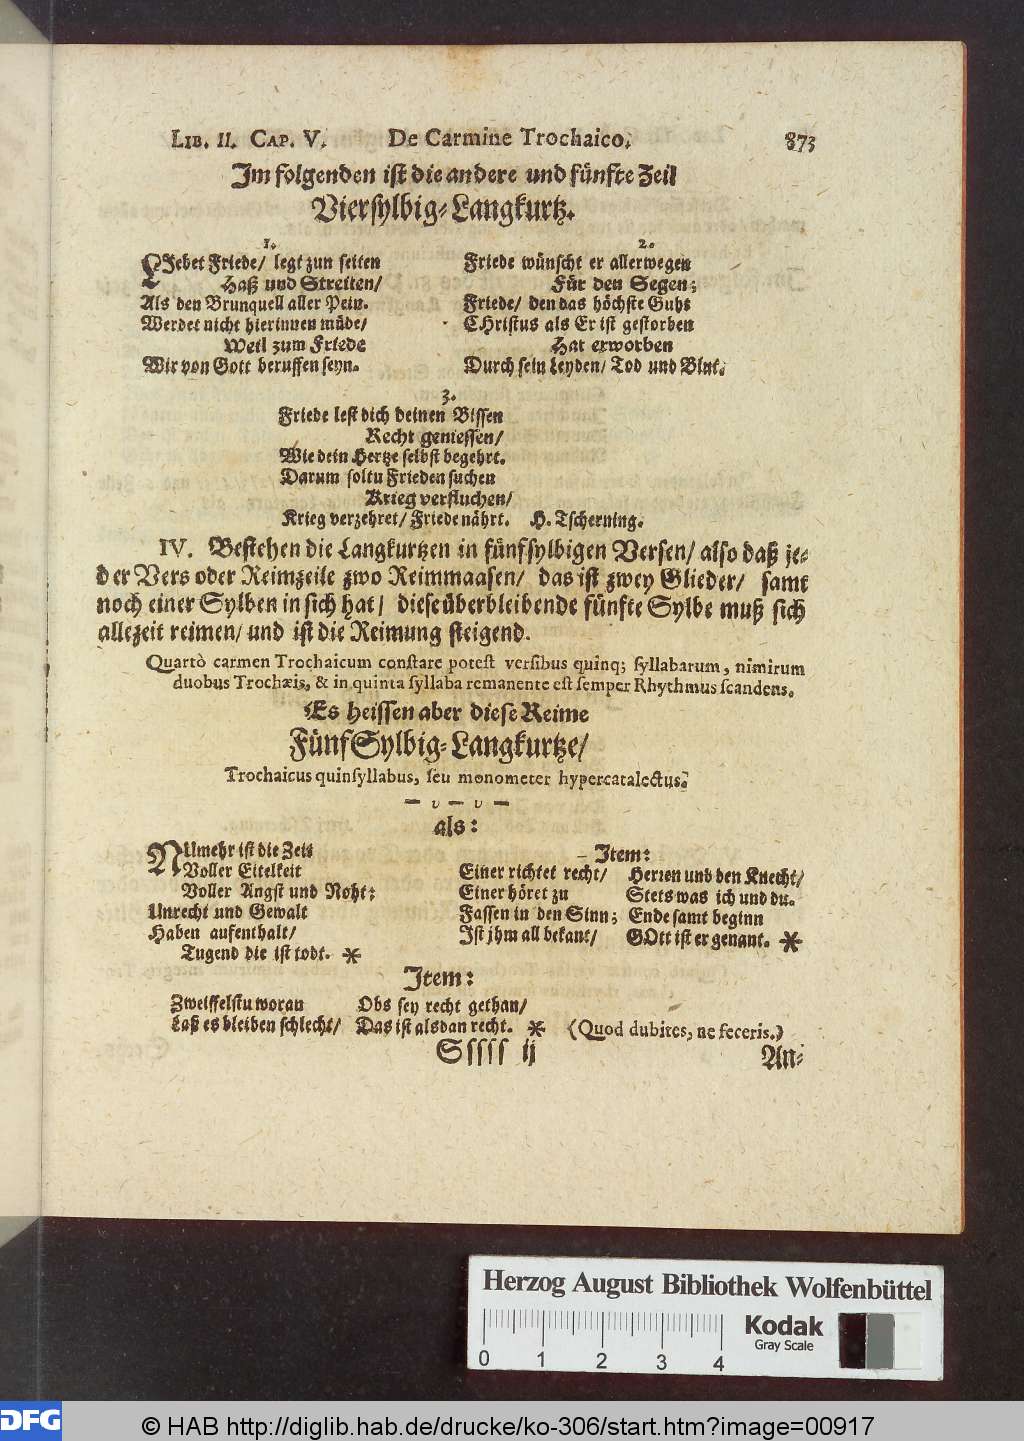 LIB. II. CAP. V. De Carmine Trochaico. 873
Im folgenden ist die andere und fünfte Zeil
Viersylbig-Langkurtz.
1.
LIebet Friede/ legt zun seiten
Haß und Streiten/
Als den Brunquell aller Pein.
Werdet nicht hierinnen müde/
Weil zum Friede
Wir von Gott beruffen seyn.
2.
Friede wünscht er allerwegen
Für den Segen;
Friede/ den das höchste Guht
CHristus als Er ist gestorben
Hat erworben
Durch sein Leyden/ Tod und Blut.
3.
Friede lest dich deinen Bissen
Recht geniessen/
Wie dein Hertze selbst begehrt.
Darum soltu Frieden suchen
Krieg verfluchen/
Krieg verzehret/ Friede nährt. H. Tscherning.
IV. Bestehen die Langkurtzen in fünfsylbigen Versen/ also daß je-
der Vers oder Reimzeile zwo Reimmaasen/ das ist zwey Glieder/ samt
noch einer Sylben in sich hat/ diese überbleibende fünfte Sylbe muß sich
allezeit reimen/ und ist die Reimung steigend.
Quartò carmen Trochaicum constare potest versibus quinq; syllabarum, nimirum
duobus Trochæis, & in quinta syllaba remanente est semper Rhythmus scandens.
Es heissen aber diese Reime
FünfSylbig-Langkurtze/
Trochaicus quinsyllabus, seu monometer hypercatalectus.
— υ — υ —
als:
NUmehr ist die Zeit
Voller Eitelkeit
Voller Angst und Noht;
Unrecht und Gewalt
Haben aufenthalt/
Tugend die ist todt. *
Item:
Einer richtet recht/ Herren und den Knecht/
Einer höret zu Stets was ich und du.
Fassen in den Sinn; Ende samt beginn
Ist jhm all bekant/ GOtt ist er genant. *
Item:
Zweiffelstu woran Obs sey recht gethan/
Laß es bleiben schlecht/ Das ist alsdan recht. * (Quod dubites, ne feceris.)
Sssss ij An-
Herzog August Bibliothek Wolfenbüttel
0 1 2 3 4
Kodak
Gray Scale
DFG © HAB http://diglib.hab.de/drucke/ko-306/start.htm?image=00917